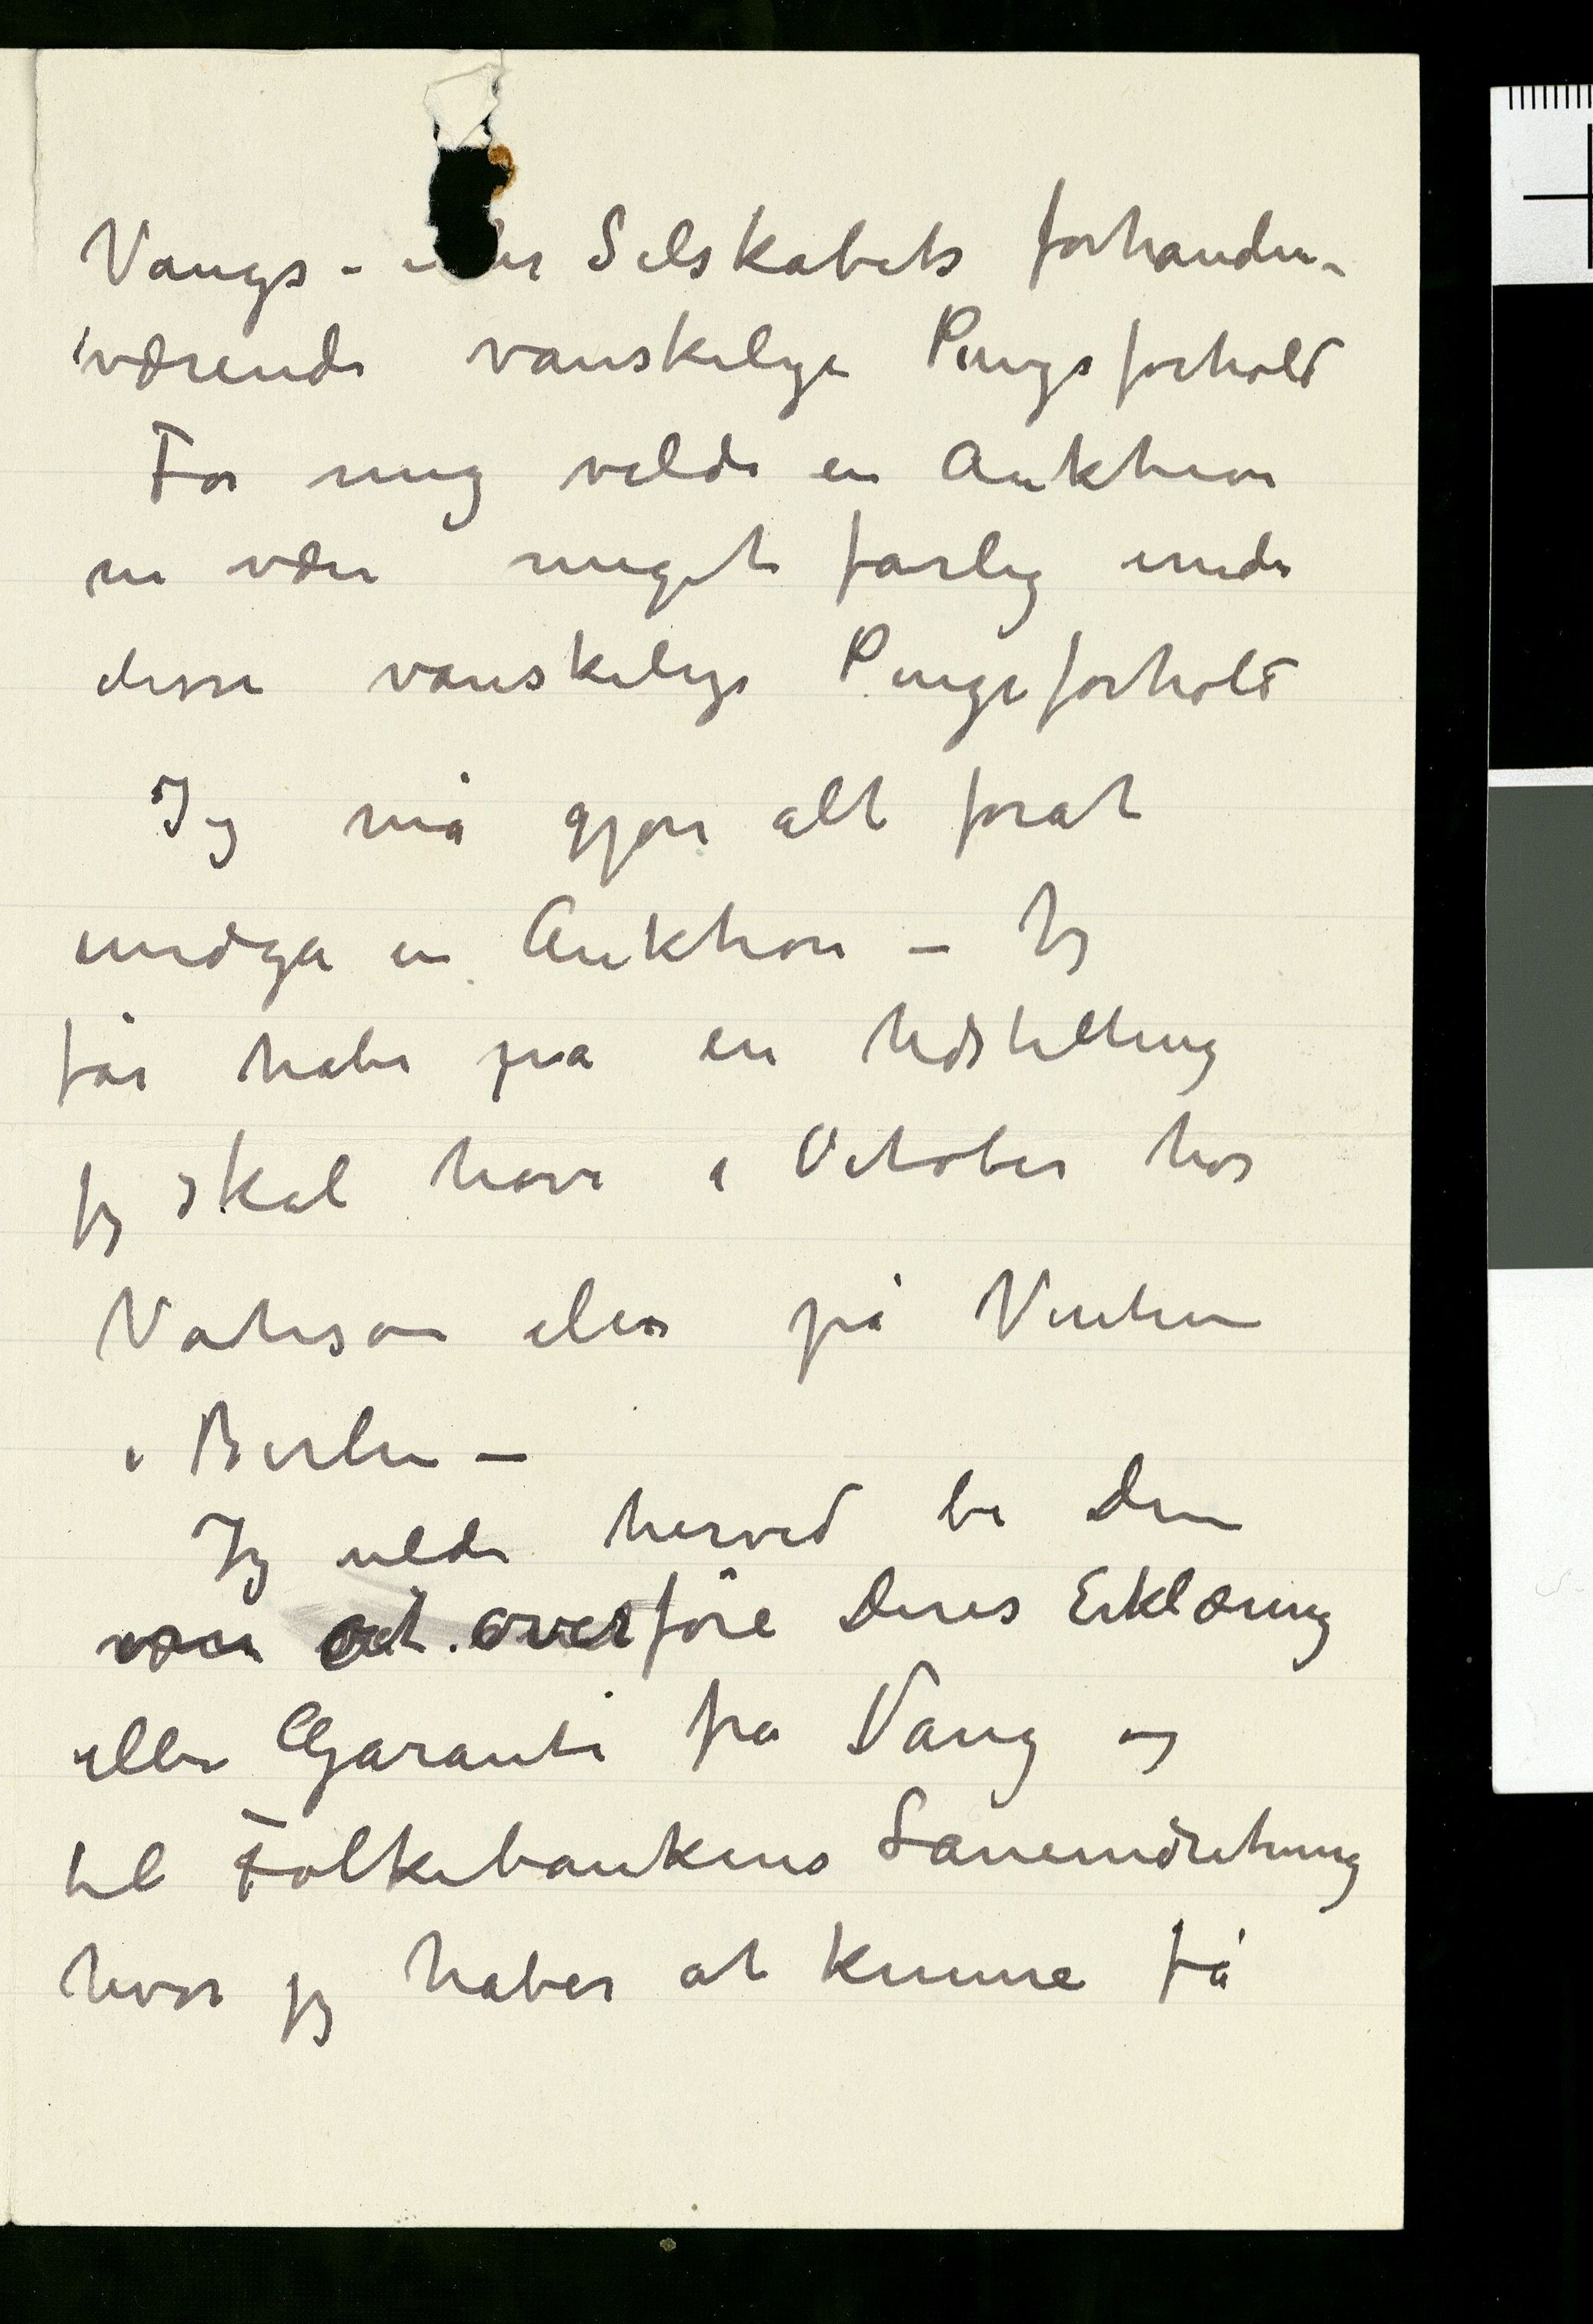 Vangs - eller Selskabets forhanden-
værende vanskelige Pengeforhold
For mig vilde en Auktion
nu være meget farlig under
disse vanskelige Pengeforhold
Jeg må gjøre alt forat
undgå en Auktion – Jeg
får håbe på en Udstilling
jeg skal have i October hos
Vatison eller på Vinteren
i Berlin –
Jeg vilde herved be Dem
om at overføre Deres Erklæring
eller Garanti fra Vang og
til Folkebankens Låneindretning
hvor jeg håber at kunne få